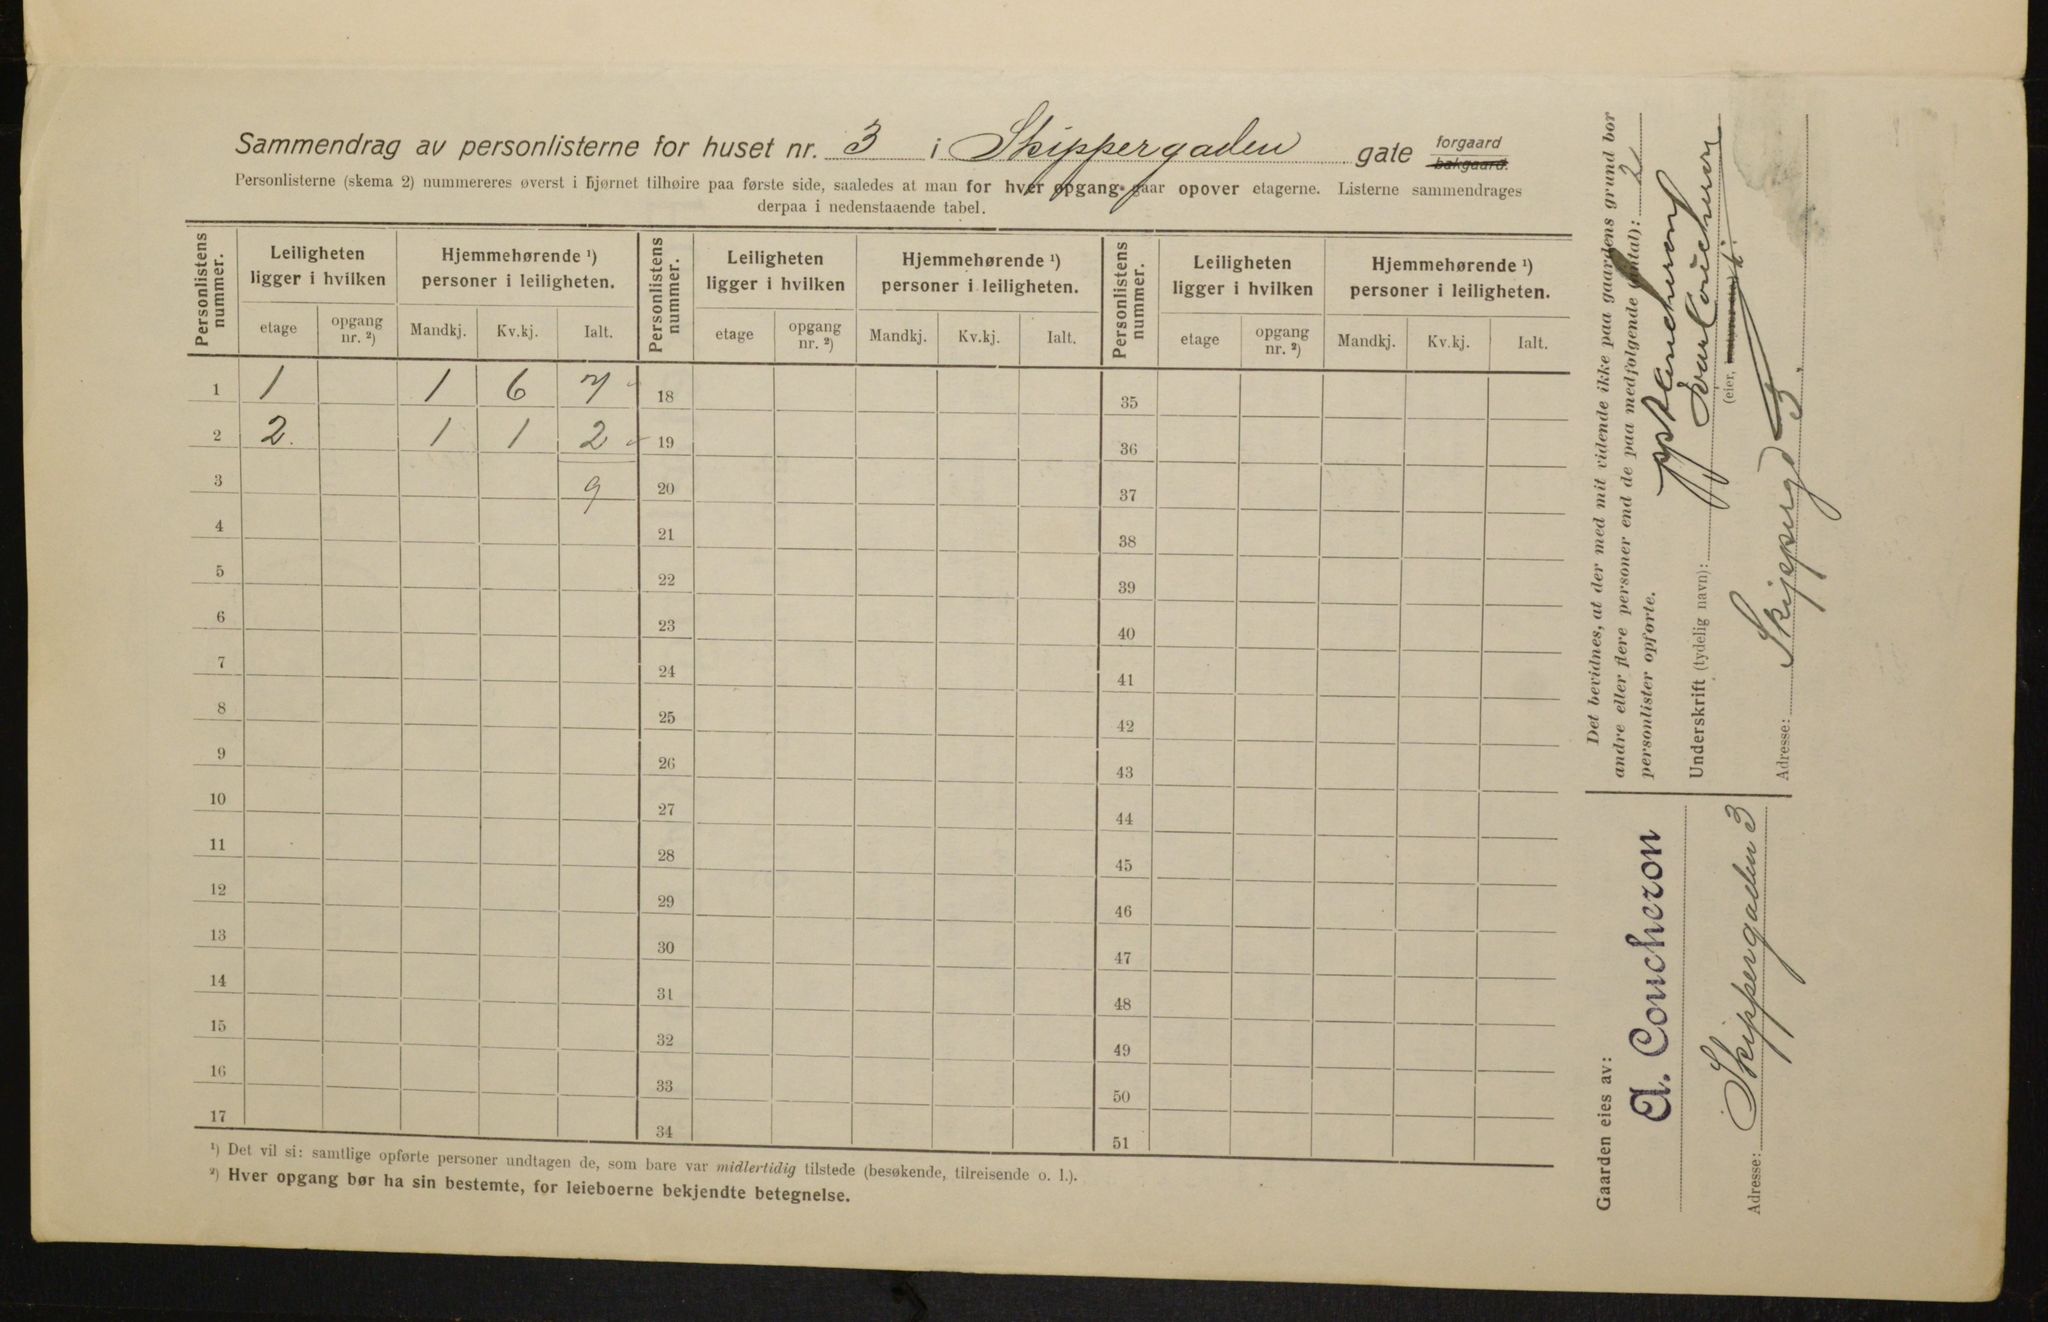 Sammendrag av personlisterne for huset nr. 3 i Skippergaden gate forgaard bakgaard.
Personlisterne (skema 2) nummereres øverst i hjørnet tilhøire paa første side, saaledes at man for hver opgang gaar opover etagerne. Listerne sammendrages
derpaa i nedenstaaende tabel.
Personlistens nummer. Leiligheten ligger i hvilken Hjemmehørende ¹) personer i leiligheten. Personlistens nummer. Leiligheten ligger i hvilken Hjemmehørende ¹) personer i leiligheten. Personlistens nummer. Leiligheten ligger i hvilken Hjemmehørende ¹) personer i leiligheten.
etage opgang nr. ²) Mandkj. Kv.kj. Ialt. etage opgang nr. ²) Mandkj. Kv.kj. Ialt. etage opgang nr. ²) Mandkj. Kv.kj. Ialt.
1 1 1 6 7 18 35
2 2. 1 1 2 19 36
3 9 20 37
4 21 38
5 22 39
6 23 40
7 24 41
8 25 42
9 26 43
10 27 44
11 28 45
12 29 46
13 30 47
14 31 48
15 32 49
16 33 50
17 34 51
¹) Det vil si: samtlige opførte personer undtagen de, som bare var midlertidig tilstede (besøkende, tilreisende o. l.).
²) Hver opgang bør ha sin bestemte, for leieboerne bekjendte betegnelse.
Det bevidnes, at der med mit vidende ikke paa gaardens grund bor
andre eller flere personer end de paa medfølgende (antal): 2
personlister opførte.
Underskrift (tydelig navn):
(eier,
Adresse: Skipergd 3.
Gaarden eies av:
A. Coucheron
Adresse: Skippergaden 3